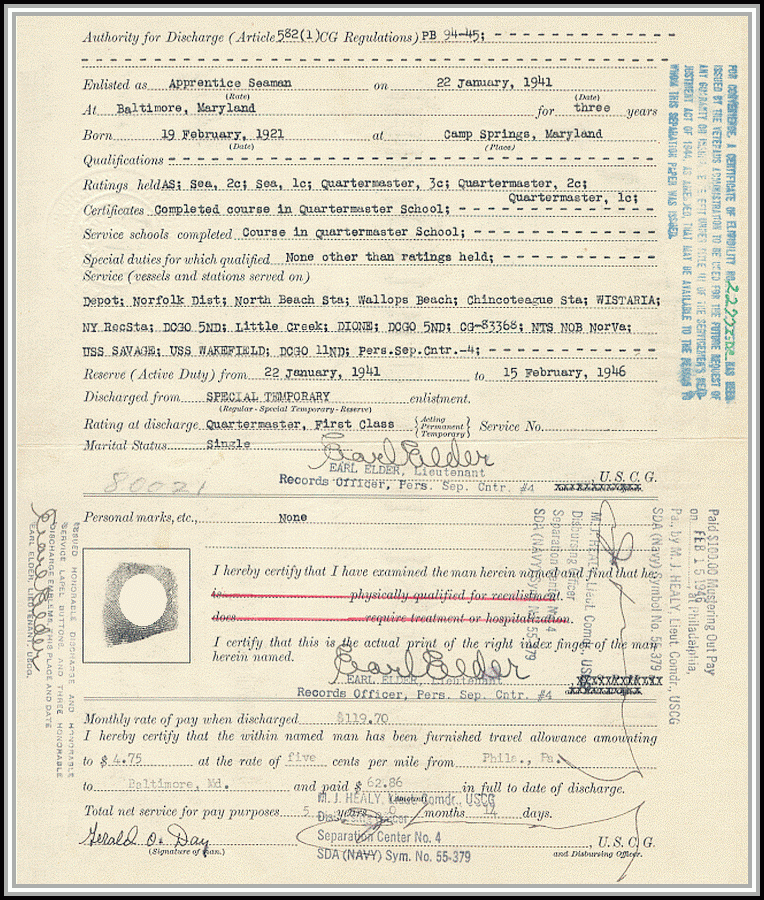 Authority for Discharge (Article 582(1) CG Regulations) PB 94-45;
Enlisted as Apprentice Seaman on 22 January, 1941
(Rate) (Date)
At Baltimore, Maryland for three years
Born 19 February, 1921 at Camp Springs, Maryland
(Date) (Place)
Qualifications
Ratings held AS; Sea, 2c; Sea, 1c; Quartermaster, 3c; Quartermaster, 2c;
Quartermaster, 1c;
Certificates Completed course in Quartermaster School;
Service schools completed Course in Quartermaster School;
Special duties for which qualified None other than ratings held;
Service (vessels and stations served on)
Depot; Norfolk Dist; North Beach Sta; Wallops Beach; Chincoteague Sta; WISTARIA;
NY RecSta; DCGO 5ND; Little Creek; DIONE; DCGO 5ND; CG-83368; NTS NOB NorVa;
USS SAVAGE; USS WAKEFIELD; DCGO 11ND; Pers.Sep.Cntr.-4;
Reserve (Active Duty) from 22 January, 1941 to 15 February, 1946
Discharged from SPECIAL TEMPORARY enlistment.
(Regular - Special Temporary - Reserve)
Rating at discharge Quartermaster, First Class {Acting Permanent Temporary} Service No.
Marital Status Single
Earl Elder
EARL ELDER, Lieutenant
Records Officer, Pers. Sep. Cntr. #4 , U. S. C. G.
80021
Personal marks, etc., None
I hereby certify that I have examined the man herein named and find that he
is physically qualified for reenlistment.
does require treatment or hospitalization.
I certify that this is the actual print of the right index finger of the man
herein named.
Earl Elder
EARL ELDER, Lieutenant
Records Officer, Pers. Sep. Cntr. #4
Monthly rate of pay when discharged $119.70
I hereby certify that the within named man has been furnished travel allowance amounting
to $ 4.75 at the rate of five cents per mile from Phila., Pa.
to Baltimore, Md. and paid $ 62.86 in full to date of discharge.
M. J. HEALY, Lieut. Comdr., USCG
Total net service for pay purposes 5 years months days.
Disbursing Officer
Gerald O. Day
Separation Center No. 4 , U. S. C. G.
(Signature of man.) and Disbursing Officer.
SDA (NAVY) Sym. No. 55-379
FOR CONVENIENCE, A CERTIFICATE OF ELIGIBILITY NO. HAS BEEN
ISSUED BY THE VETERANS ADMINISTRATION TO BE USED FOR THE FUTURE REQUEST OF
ANY GUARANTY OR
JUSTMENT ACT OF 1944, AS AMENDED, THAT MAY BE AVAILABLE TO THE PERSON TO
WHOM THIS SEPARATION PAPER WAS ISSUED.
Paid $100.00 Mustering Out Pay
on FEB 1946 Philadelphia,
Pa., by M. J. HEALY, Lieut. Comdr., USCG
SDA (Navy) Symbol No. 55-379
M. J. HEALY, Lieut. Comdr., USCG
Disbursing Officer
Separation Center No. 4
SDA (NAVY) Sym. No. 55-379
ISSUED HONORABLE DISCHARGE AND HONORABLE
SERVICE LAPEL BUTTONS, AND THREE HONORABLE
DISCHARGE EMBLEMS, THIS PLACE AND DATE
Earl Elder
EARL ELDER, LIEUTENANT, USCG.